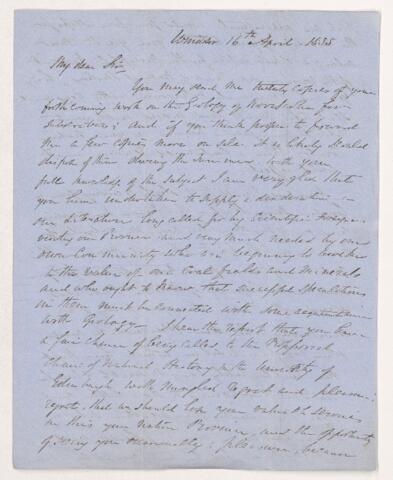 Windsor 16th April 1855
My dear Sir
You may send me twenty copies of your
forthcoming work on the Geology of Nova Scotia for
subscribers; and if you think proper to forward
me a few copies more on sale it is likely I could
dispose of them during the Summer. With your
full knowledge of the subject I am very glad that
you have undertaken to supply a desideratum in
our literature long called for by Scientific
our Province and very much needed by our
own Community who are beginning to awake
to the value of our Coal fields and Minerals
and who ought to know that successful speculations
in them must be connected with some acquaintance
with Geology. I hear the report that you have
a fair chance of being called to the Professorial
Chair of Natural History in the University of
Edinburgh with mingled regret and pleasure:
regret, that we should lose your valuable services
in this your Native Province, and the opportunity
of seeing you occasionally: pleasure, because